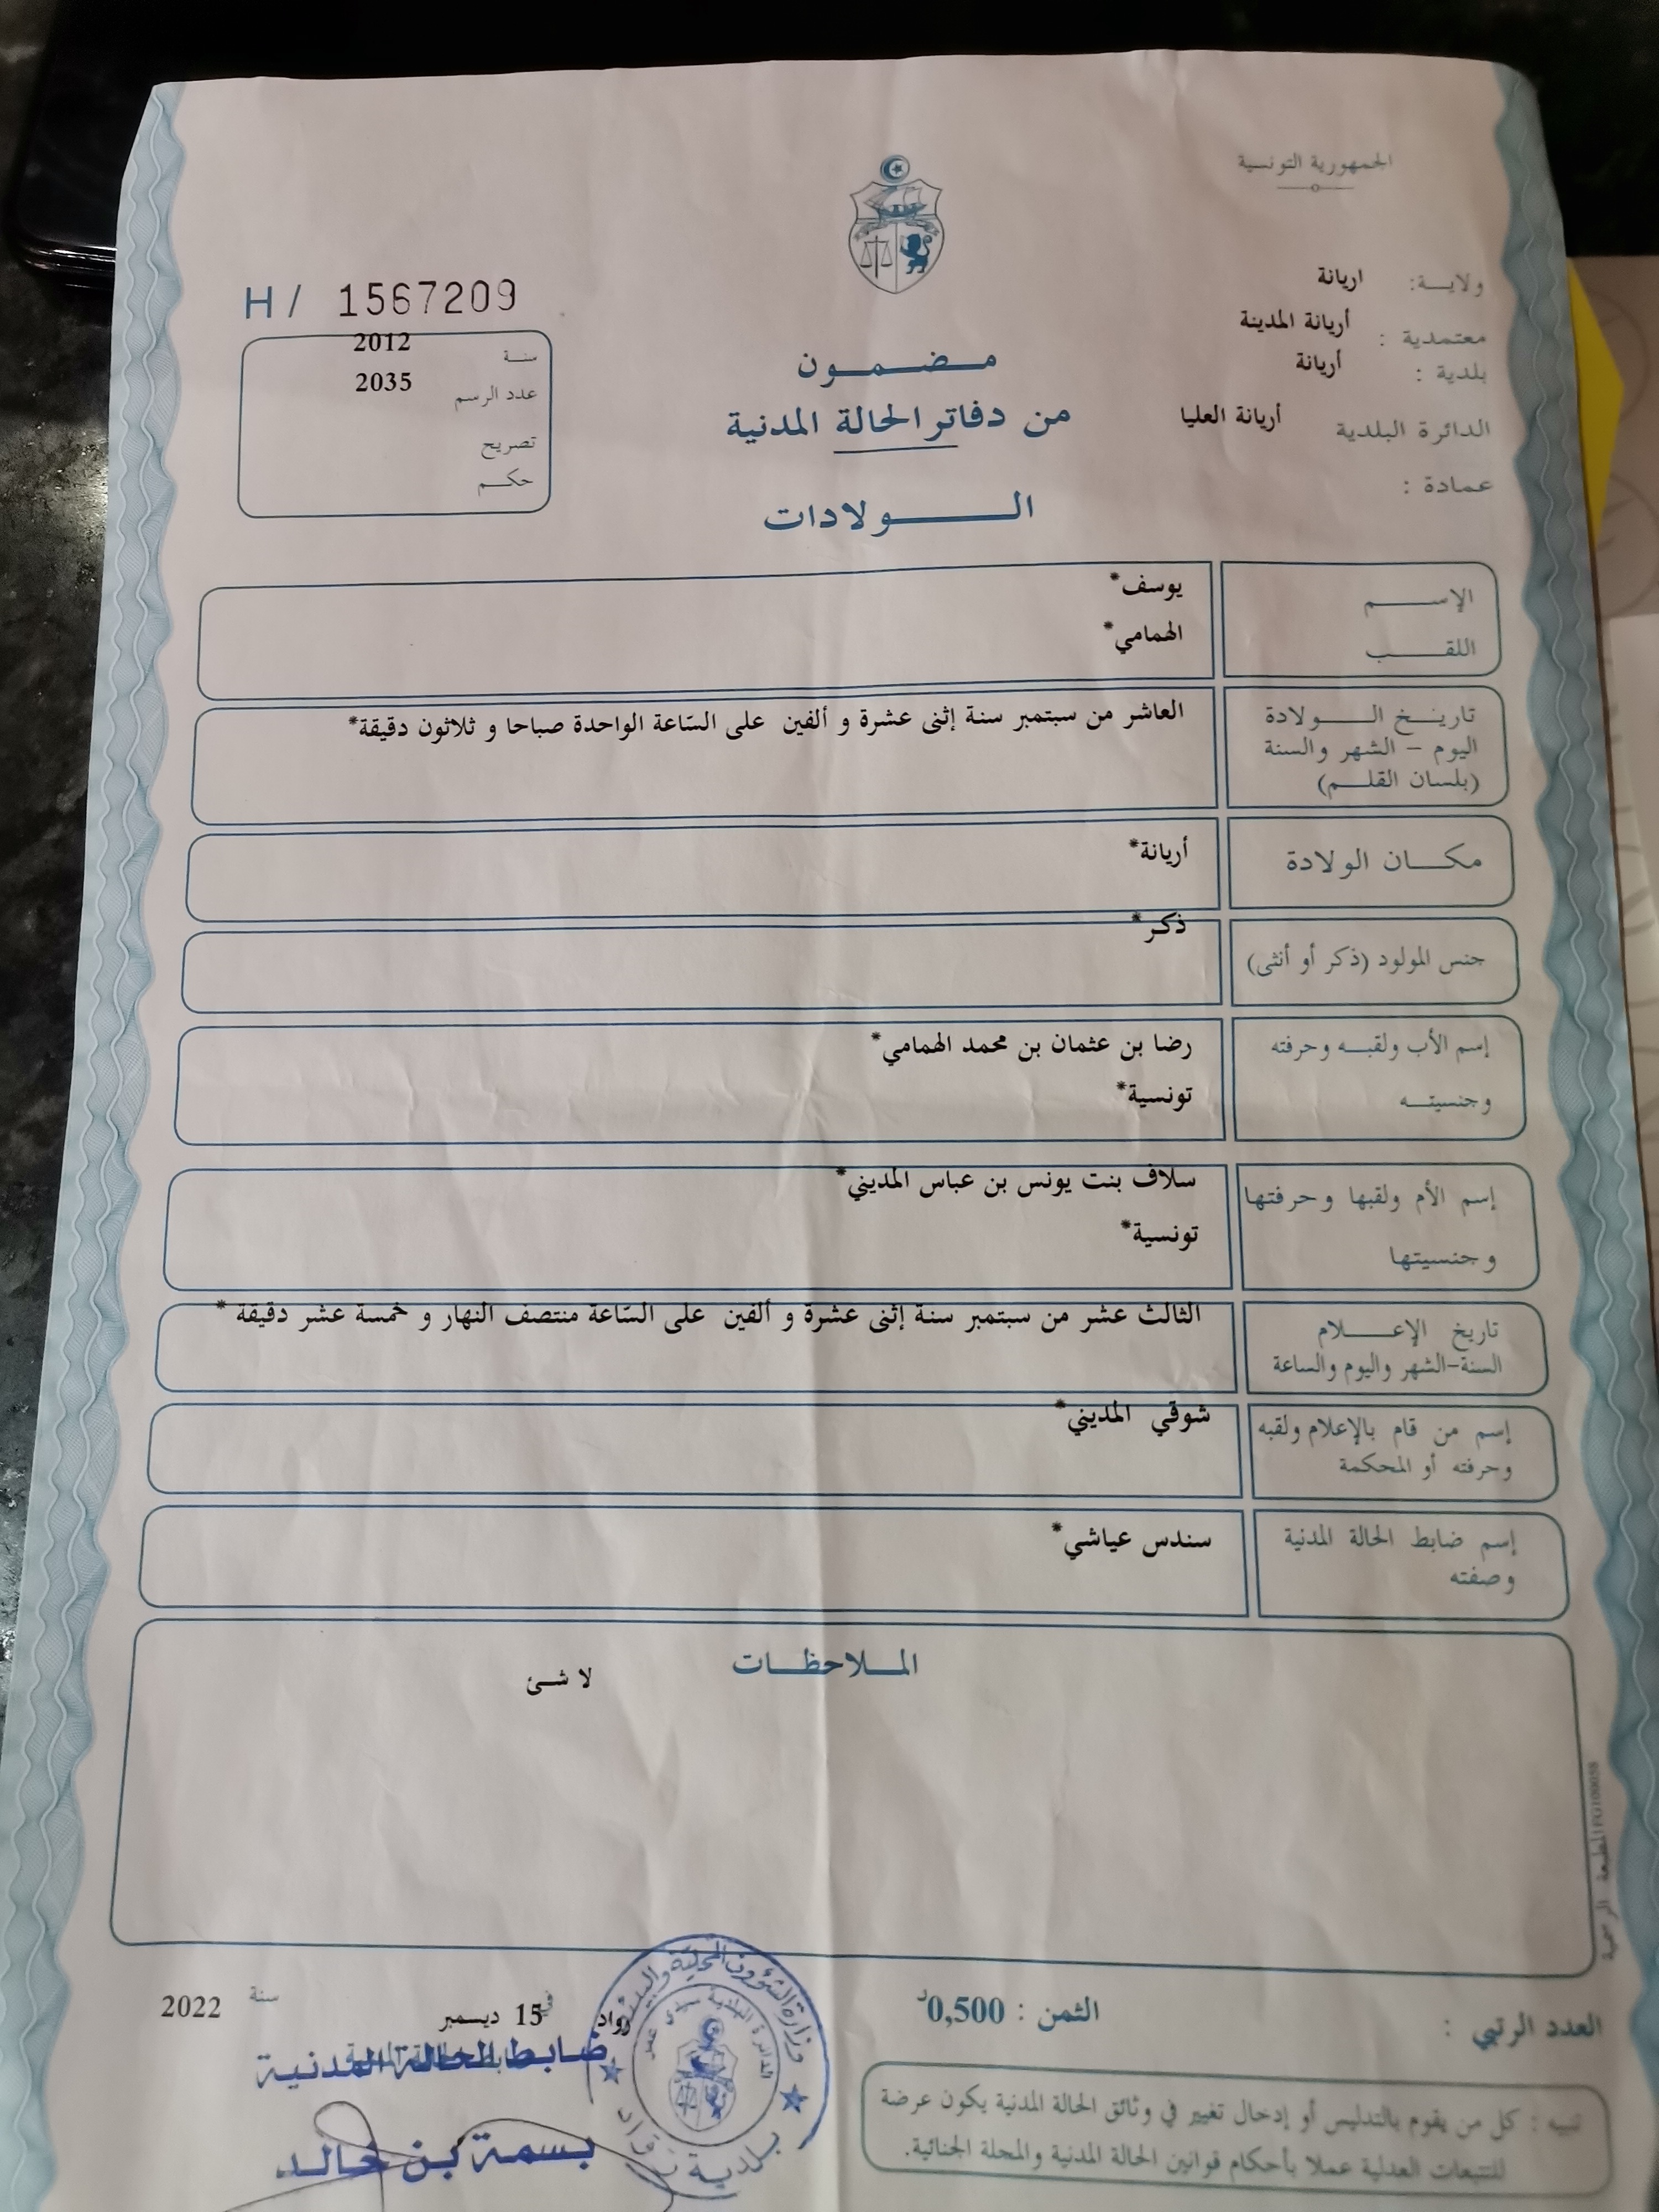 الجمهورية التونسية
ولاية: اريانة
معتمدية : أريانة المدينة
بلدية : أريانة
الدائرة البلدية أريانة العليا
عمادة :
H / 1567209
سنة 2012
عدد الرسم 2035
تصريح
حكم
مضمون
من دفاتر الحالة المدنية
الولادات
الإسم يوسف*
اللقب الهمامي*
تاريخ الولادة
اليوم - الشهر والسنة
(بلسان القلم)
العاشر من سبتمبر سنة إثنى عشرة و ألفين على السّاعة الواحدة صباحا و ثلاثون دقيقة*
مكان الولادة أريانة*
جنس المولود (ذكر أو أنثى) ذكر*
إسم الأب ولقبه وحرفته رضا بن عثمان بن محمد الهمامي*
وجنسيته تونسية*
إسم الأم ولقبها وحرفتها سلاف بنت يونس بن عباس المديني*
وجنسيتها تونسية*
تاريخ الإعلام
السنة-الشهر واليوم والساعة
الثالث عشر من سبتمبر سنة إثنى عشرة و ألفين على السّاعة منتصف النهار و خمسة عشر دقيقة *
إسم من قام بالإعلام ولقبه
وحرفته أو المحكمة
شوقي المديني*
إسم ضابط الحالة المدنية
وصفته
سندس عياشي*
الملاحظات
لا شئ
المطبعة الرسمية
العدد الرتبي :
الثمن : 0,500د
رواد في 15 ديسمبر سنة 2022
ضابط الحالة المدنية
بسمة بن خالد
وزارة الشؤون المحلية والبيئة
بلدية رواد
تنبيه : كل من يقوم بالتدليس أو إدخال تغيير في وثائق الحالة المدنية يكون عرضة
للتتبعات العدلية عملا بأحكام قوانين الحالة المدنية والمجلة الجنائية.